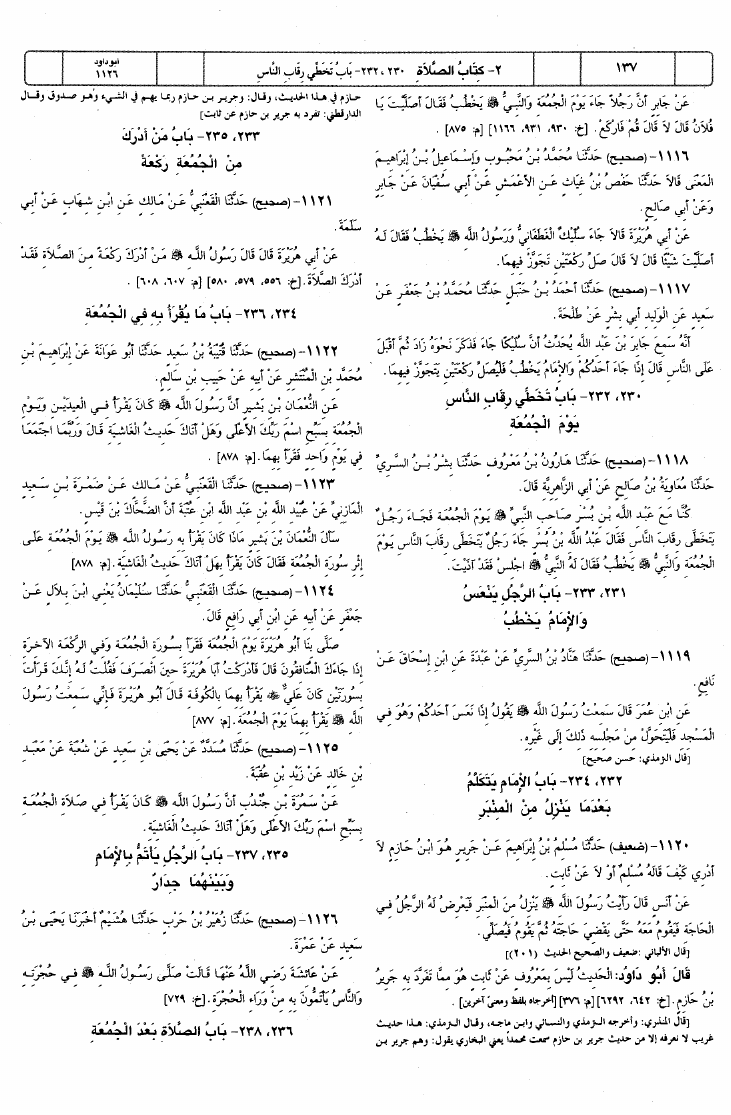 ١٣٧
٢- كِتَاب الصَّلَاة ٢٣٠، ٢٣٢- بَابُ تَخَطِّي رِقَابِ النَّاسِ
أبوداود
١١٢٦
عَنْ جَابِرٍ أَنَّ رَجُلًا جَاءَ يَوْمَ الْجُمُعَةِ وَالنَّبِيُّ ﷺ يَخْطُبُ فَقَالَ أَصَلَّيْتَ يَا
فُلَانُ قَالَ لَا قَالَ قُمْ فَارْكَعْ. [خ: ٩٣٠، ٩٣١، ١١٦٦] [م: ٨٧٥].
١١١٦-(صحيح) حَدَّثَنَا مُحَمَّدُ بْنُ مَحْبُوبٍ وَإِسْمَاعِيلُ بْنُ إِبْرَاهِيمَ
الْمَعْنَى قَالَا حَدَّثَنَا حَفْصُ بْنُ غِيَاثٍ عَنِ الْأَعْمَشِ عَنْ أَبِي سُفْيَانَ عَنْ جَابِرٍ
وَعَنْ أَبِي صَالِحٍ.
عَنْ أَبِي هُرَيْرَةَ قَالَا جَاءَ سُلَيْكٌ الْغَطَفَانِيُّ وَرَسُولُ اللَّهِ ﷺ يَخْطُبُ فَقَالَ لَهُ
أَصَلَّيْتَ شَيْئًا قَالَ لَا قَالَ صَلِّ رَكْعَتَيْنِ تَجَوَّزْ فِيهِمَا.
١١١٧-(صحيح) حَدَّثَنَا أَحْمَدُ بْنُ حَنْبَلٍ حَدَّثَنَا مُحَمَّدُ بْنُ جَعْفَرٍ عَنْ
سَعِيدٍ عَنِ الْوَلِيدِ أَبِي بِشْرٍ عَنْ طَلْحَةَ.
أَنَّهُ سَمِعَ جَابِرَ بْنَ عَبْدِ اللَّهِ يُحَدِّثُ أَنَّ سُلَيْكًا جَاءَ فَذَكَرَ نَحْوَهُ زَادَ ثُمَّ أَقْبَلَ
عَلَى النَّاسِ قَالَ إِذَا جَاءَ أَحَدُكُمْ وَالْإِمَامُ يَخْطُبُ فَلْيُصَلِّ رَكْعَتَيْنِ يَتَجَوَّزْ فِيهِمَا.
٢٣٠، ٢٣٢- بَابُ تَخَطِّي رِقَابِ النَّاسِ
يَوْمَ الْجُمُعَةِ
١١١٨-(صحيح) حَدَّثَنَا هَارُونُ بْنُ مَعْرُوفٍ حَدَّثَنَا بِشْرُ بْنُ السَّرِيِّ
حَدَّثَنَا مُعَاوِيَةُ بْنُ صَالِحٍ عَنْ أَبِي الزَّاهِرِيَّةِ قَالَ.
كُنَّا مَعَ عَبْدِ اللَّهِ بْنِ بُسْرٍ صَاحِبِ النَّبِيِّ ﷺ يَوْمَ الْجُمُعَةِ فَجَاءَ رَجُلٌ
يَتَخَطَّى رِقَابَ النَّاسِ فَقَالَ عَبْدُ اللَّهِ بْنُ بُسْرٍ جَاءَ رَجُلٌ يَتَخَطَّى رِقَابَ النَّاسِ يَوْمَ
الْجُمُعَةِ وَالنَّبِيُّ ﷺ يَخْطُبُ فَقَالَ لَهُ النَّبِيُّ ﷺ اجْلِسْ فَقَدْ آذَيْتَ.
٢٣١، ٢٣٣- بَابُ الرَّجُلِ يَنْعَسُ
وَالْإِمَامُ يَخْطُبُ
١١١٩-(صحيح) حَدَّثَنَا هَنَّادُ بْنُ السَّرِيِّ عَنْ عَبْدَةَ عَنِ ابْنِ إِسْحَاقَ عَنْ
نَافِعٍ.
عَنِ ابْنِ عُمَرَ قَالَ سَمِعْتُ رَسُولَ اللَّهِ ﷺ يَقُولُ إِذَا نَعَسَ أَحَدُكُمْ وَهُوَ فِي
الْمَسْجِدِ فَلْيَتَحَوَّلْ مِنْ مَجْلِسِهِ ذَلِكَ إِلَى غَيْرِهِ.
[قال الترمذي: حسن صحيح]
٢٣٢، ٢٣٤- بَابُ الْإِمَامِ يَتَكَلَّمُ
بَعْدَمَا يَنْزِلُ مِنَ الْمِنْبَرِ
١١٢٠-(ضعيف) حَدَّثَنَا مُسْلِمُ بْنُ إِبْرَاهِيمَ عَنْ جَرِيرٍ هُوَ ابْنُ حَازِمٍ لَا
أَدْرِي كَيْفَ قَالَهُ مُسْلِمٌ أَوْ لَا عَنْ ثَابِتٍ.
عَنْ أَنَسٍ قَالَ رَأَيْتُ رَسُولَ اللَّهِ ﷺ يَنْزِلُ مِنَ الْمِنْبَرِ فَيَعْرِضُ لَهُ الرَّجُلُ فِي
الْحَاجَةِ فَيَقُومُ مَعَهُ حَتَّى يَقْضِيَ حَاجَتَهُ ثُمَّ يَقُومُ فَيُصَلِّي.
[قال الألباني :ضعيف والصحيح الحديث (٢٠١)]
قَالَ أَبُو دَاوُد: الْحَدِيثُ لَيْسَ بِمَعْرُوفٍ عَنْ ثَابِتٍ هُوَ مِمَّا تَفَرَّدَ بِهِ جَرِيرُ
بْنُ حَازِمٍ. [خ: ٦٤٢، ٦٢٩٢] [م: ٣٧٦] [أخرجاه بلفظ ومعنى آخرين].
[قال المنذري: وأخرجه الترمذي والنسائي وابن ماجه، وقال الترمذي: هذا حديث
غريب لا نعرفه إلا من حديث جرير بن حازم سمعت محمداً يعني البخاري يقول: وهم جرير بن
حازم في هذا الحديث، وقال: وجرير بن حازم ربما يهم في الشيء وهو صدوق وقال
الدارقطني: تفرد به جرير بن حازم عن ثابت]
٢٣٣، ٢٣٥- بَابُ مَنْ أَدْرَكَ
مِنَ الْجُمُعَةِ رَكْعَةً
١١٢١-(صحيح) حَدَّثَنَا الْقَعْنَبِيُّ عَنْ مَالِكٍ عَنِ ابْنِ شِهَابٍ عَنْ أَبِي
سَلَمَةَ.
عَنْ أَبِي هُرَيْرَةَ قَالَ قَالَ رَسُولُ اللَّهِ ﷺ مَنْ أَدْرَكَ رَكْعَةً مِنَ الصَّلَاةِ فَقَدْ
أَدْرَكَ الصَّلَاةَ. [خ: ٥٥٦، ٥٧٩، ٥٨٠] [م: ٦٠٧، ٦٠٨].
٢٣٤، ٢٣٦- بَابُ مَا يُقْرَأُ بِهِ فِي الْجُمُعَةِ
١١٢٢-(صحيح) حَدَّثَنَا قُتَيْبَةُ بْنُ سَعِيدٍ حَدَّثَنَا أَبُو عَوَانَةَ عَنْ إِبْرَاهِيمَ بْنِ
مُحَمَّدِ بْنِ الْمُنْتَشِرِ عَنْ أَبِيهِ عَنْ حَبِيبِ بْنِ سَالِمٍ.
عَنِ النُّعْمَانِ بْنِ بَشِيرٍ أَنَّ رَسُولَ اللَّهِ ﷺ كَانَ يَقْرَأُ فِي الْعِيدَيْنِ وَيَوْمِ
الْجُمُعَةِ بِسَبِّحِ اسْمَ رَبِّكَ الْأَعْلَى وَهَلْ أَتَاكَ حَدِيثُ الْغَاشِيَةِ قَالَ وَرُبَّمَا اجْتَمَعَا
فِي يَوْمٍ وَاحِدٍ فَقَرَأَ بِهِمَا. [م: ٨٧٨].
١١٢٣-(صحيح) حَدَّثَنَا الْقَعْنَبِيُّ عَنْ مَالِكٍ عَنْ ضَمْرَةَ بْنِ سَعِيدٍ
الْمَازِنِيِّ عَنْ عُبَيْدِ اللَّهِ بْنِ عَبْدِ اللَّهِ ابْنِ عُتْبَةَ أَنَّ الضَّحَّاكَ بْنَ قَيْسٍ.
سَأَلَ النُّعْمَانَ بْنَ بَشِيرٍ مَاذَا كَانَ يَقْرَأُ بِهِ رَسُولُ اللَّهِ ﷺ يَوْمَ الْجُمُعَةِ عَلَى
إِثْرِ سُورَةِ الْجُمُعَةِ فَقَالَ كَانَ يَقْرَأُ بِهَلْ أَتَاكَ حَدِيثُ الْغَاشِيَةِ. [م: ٨٧٨]
١١٢٤-(صحيح) حَدَّثَنَا الْقَعْنَبِيُّ حَدَّثَنَا سُلَيْمَانُ يَعْنِي ابْنَ بِلَالٍ عَنْ
جَعْفَرٍ عَنْ أَبِيهِ عَنِ ابْنِ أَبِي رَافِعٍ قَالَ.
صَلَّى بِنَا أَبُو هُرَيْرَةَ يَوْمَ الْجُمُعَةِ فَقَرَأَ بِسُورَةِ الْجُمُعَةِ وَفِي الرَّكْعَةِ الْآخِرَةِ
إِذَا جَاءَكَ الْمُنَافِقُونَ قَالَ فَأَدْرَكْتُ أَبَا هُرَيْرَةَ حِينَ انْصَرَفَ فَقُلْتُ لَهُ إِنَّكَ قَرَأْتَ
بِسُورَتَيْنِ كَانَ عَلِيٌّ ﷺ يَقْرَأُ بِهِمَا بِالْكُوفَةِ قَالَ أَبُو هُرَيْرَةَ فَإِنِّي سَمِعْتُ رَسُولَ
اللَّهِ ﷺ يَقْرَأُ بِهِمَا يَوْمَ الْجُمُعَةِ. [م: ٨٧٧].
١١٢٥-(صحيح) حَدَّثَنَا مُسَدَّدٌ عَنْ يَحْيَى بْنِ سَعِيدٍ عَنْ شُعْبَةَ عَنْ مَعْبَدِ
بْنِ خَالِدٍ عَنْ زَيْدِ بْنِ عُقْبَةَ.
عَنْ سَمُرَةَ بْنِ جُنْدُبٍ أَنَّ رَسُولَ اللَّهِ ﷺ كَانَ يَقْرَأُ فِي صَلَاةِ الْجُمُعَةِ
بِسَبِّحِ اسْمَ رَبِّكَ الْأَعْلَى وَهَلْ أَتَاكَ حَدِيثُ الْغَاشِيَةِ.
٢٣٥، ٢٣٧- بَابُ الرَّجُلِ يَأْتَمُّ بِالْإِمَامِ
وَبَيْنَهُمَا جِدَارٌ
١١٢٦-(صحيح) حَدَّثَنَا زُهَيْرُ بْنُ حَرْبٍ حَدَّثَنَا هُشَيْمٌ أَخْبَرَنَا يَحْيَى بْنُ
سَعِيدٍ عَنْ عَمْرَةَ.
عَنْ عَائِشَةَ رَضِيَ اللَّهُ عَنْهَا قَالَتْ صَلَّى رَسُولُ اللَّهِ ﷺ فِي حُجْرَتِهِ
وَالنَّاسُ يَأْتَمُّونَ بِهِ مِنْ وَرَاءِ الْحُجْرَةِ. [خ: ٧٢٩]
٢٣٦، ٢٣٨- بَابُ الصَّلَاةِ بَعْدَ الْجُمُعَةِ